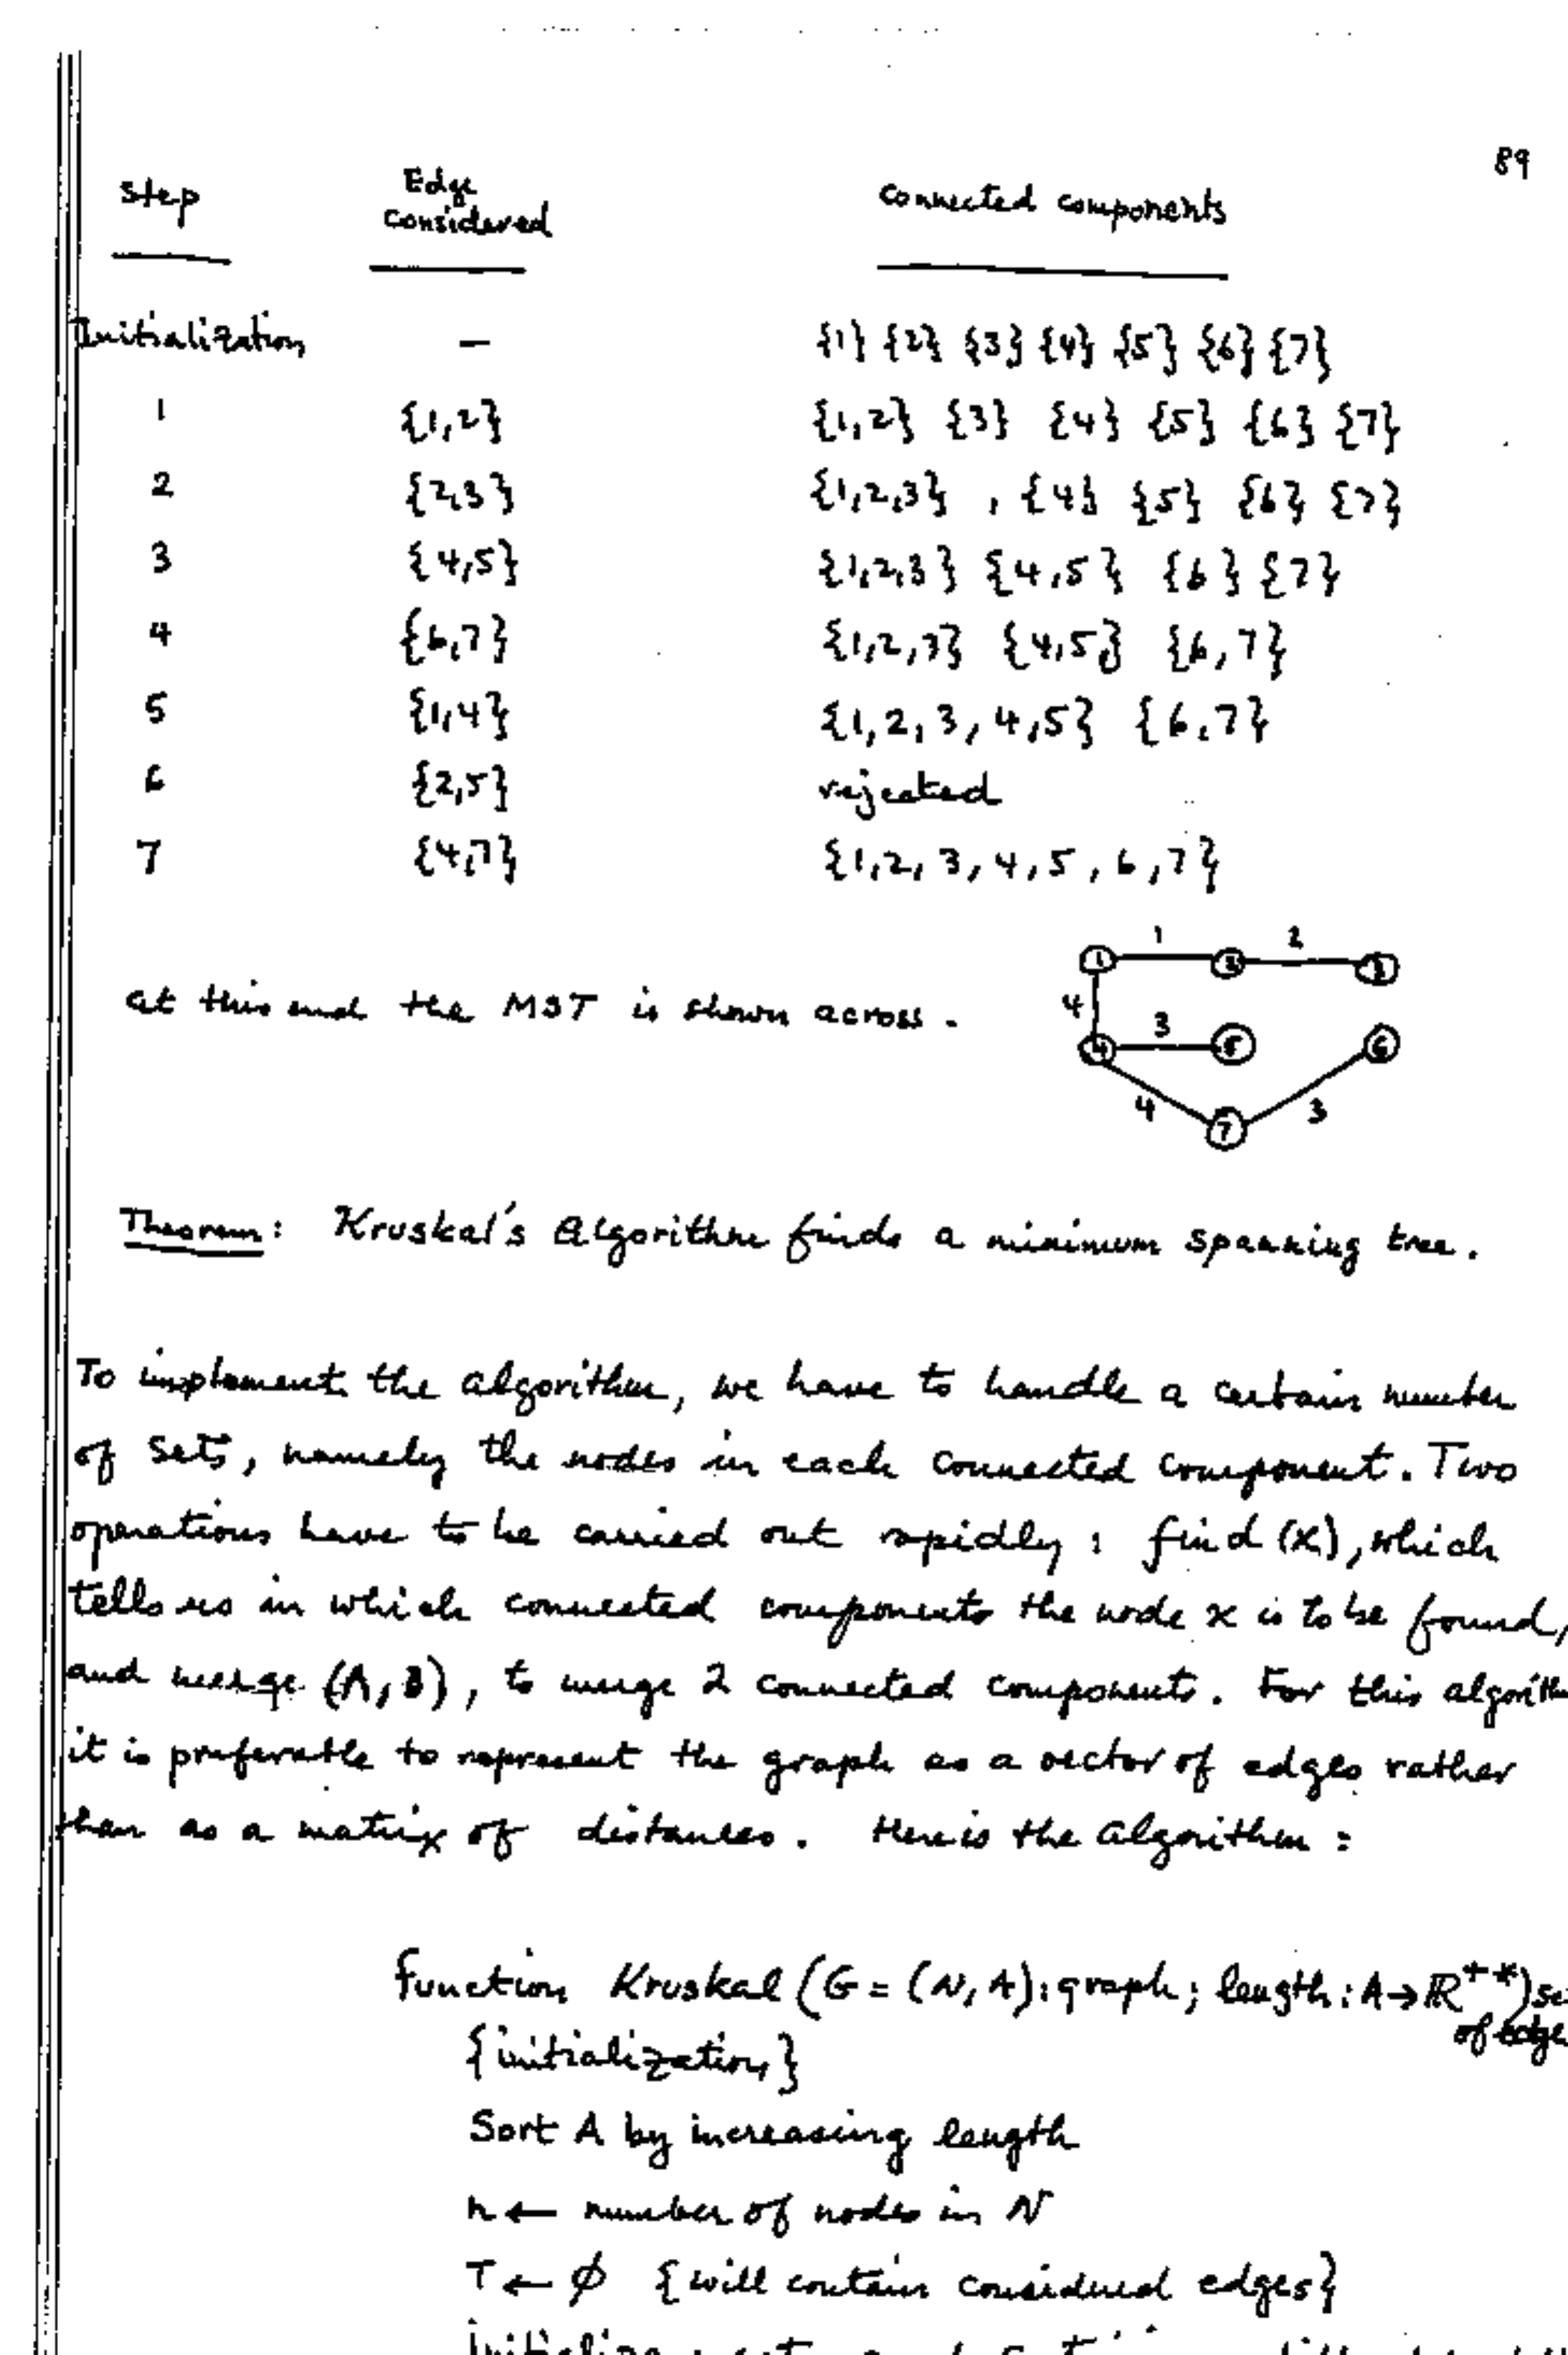 89
Step Edge Considered Connected components
Initialization — {1} {2} {3} {4} {5} {6} {7}
1 {1,2} {1,2} {3} {4} {5} {6} {7}
2 {2,3} {1,2,3} , {4} {5} {6} {7}
3 {4,5} {1,2,3} {4,5} {6} {7}
4 {6,7} {1,2,3} {4,5} {6,7}
5 {1,4} {1,2,3,4,5} {6,7}
6 {2,5} rejected
7 {4,7} {1,2,3,4,5,6,7}
1 2
1 2 3
at this end the MST is shown across.
4 3
4 5 6
4 3
7
Theorem: Kruskal's Algorithm finds a minimum spanning tree.
To implement the algorithm, we have to handle a certain number
of sets, namely the nodes in each connected component. Two
operations have to be carried out rapidly : find (x), which
tells us in which connected components the node x is to be found,
and merge (A, B), to merge 2 connected components. For this algorithm
it is preferable to represent the graph as a vector of edges rather
than as a matrix of distances. Here is the algorithm :
function Kruskal (G = (N, A): graph; length: A → ℝ⁺*) set
of edge
{initialization}
Sort A by increasing length
n ← number of nodes in N
T ← ∅ {will contain considered edges}